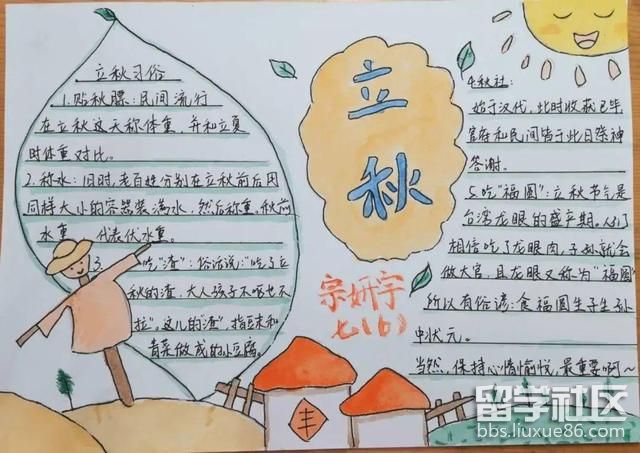 立秋习俗
1.贴秋膘：民间流行
在立秋这天称体重，并和立夏
时体重对比。
2.称水：旧时，老百姓分别在立秋前后用
同样大小的容器装满水，然后称重，秋前
水重 代表伏水重。
3. 吃"渣"：俗话说："吃了立
秋的渣，大人孩子不呕也不
拉"。这儿的"渣"，指豆末和
青菜做成的小豆腐。
立
秋
宗妍宇
七(6)
丰
4.秋社：
始于汉代，此时收获已毕
官府和民间皆于此日祭神
答谢。
5.吃"福圆"：立秋节气是
台湾龙眼的盛产期。人们
相信吃了龙眼肉，子孙就会
做大官，且龙眼又称为"福圆"
所以有俗谚：食福圆生子生孙
中状元。
当然，保持心情愉悦，最重要啊～
留学社区
bbs.liuxue86.com